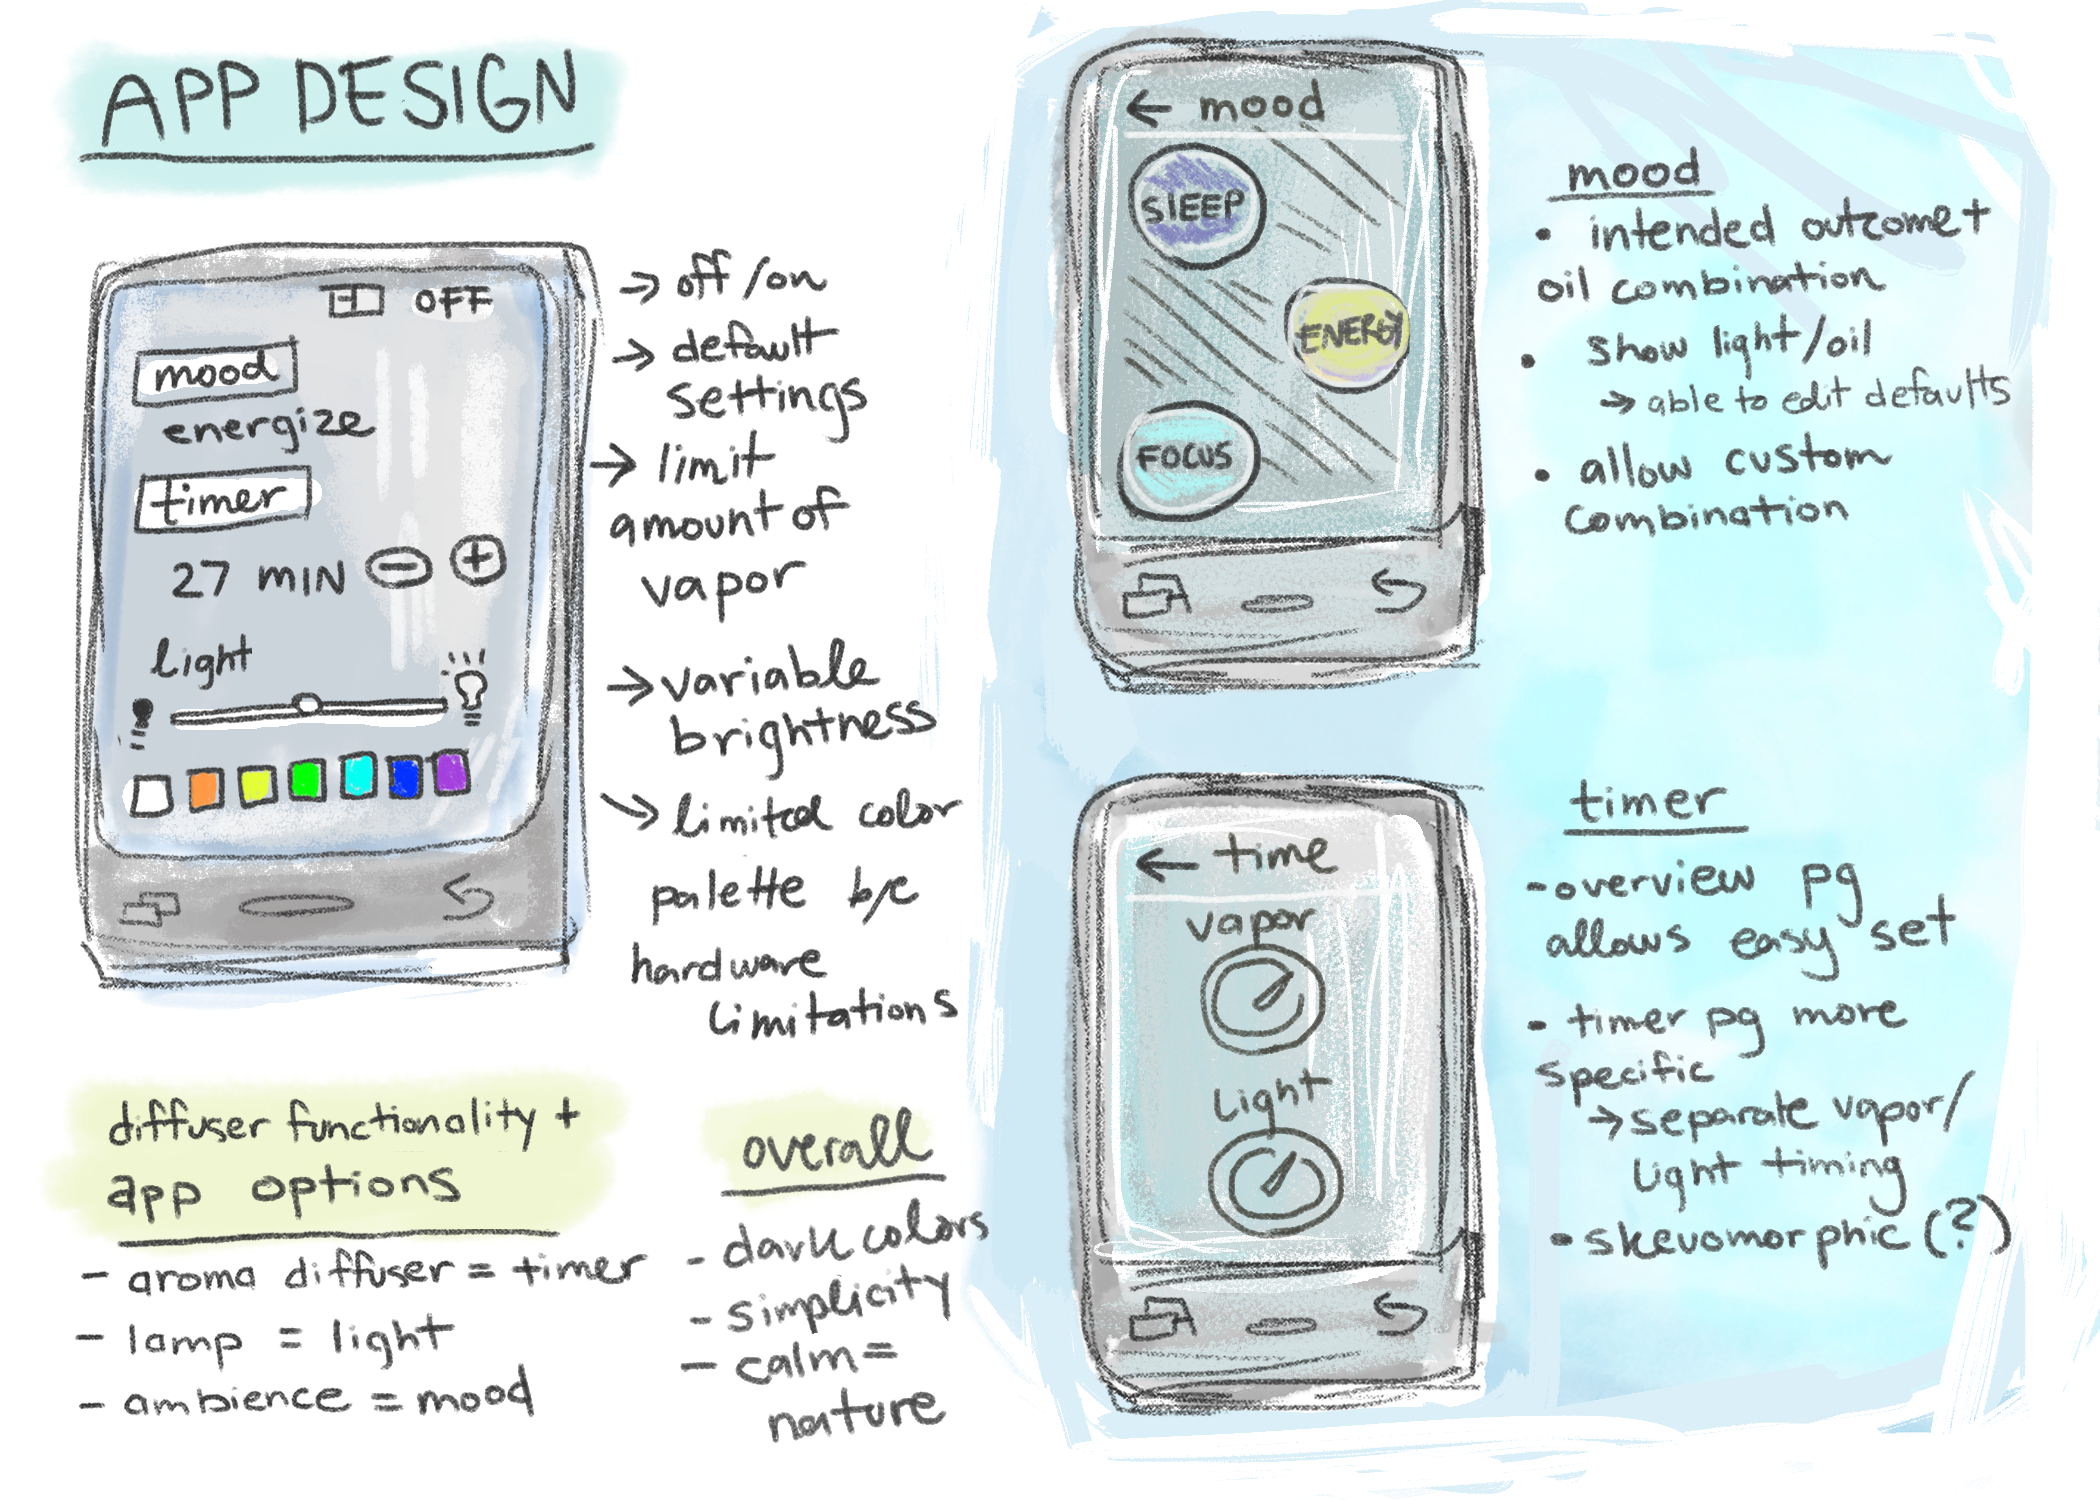 APP DESIGN
OFF
mood
energize
timer
27 MIN - +
light
→ off/on
→ default
settings
→ limit
amount of
vapor
→ variable
brightness
→ limited color
palette b/c
hardware
limitations
diffuser functionality +
app options
- aroma diffuser = timer
- lamp = light
- ambience = mood
overall
- dark colors
- simplicity
- calm =
nature
← mood
SlEEP
ENERGY
FOCUS
mood
• intended outcome +
oil combination
• show light/oil
→ able to edit defaults
• allow custom
combination
← time
vapor
Light
timer
- overview pg
allows easy set
• timer pg more
specific
→ separate vapor/
light timing
• skevomorphic (?)